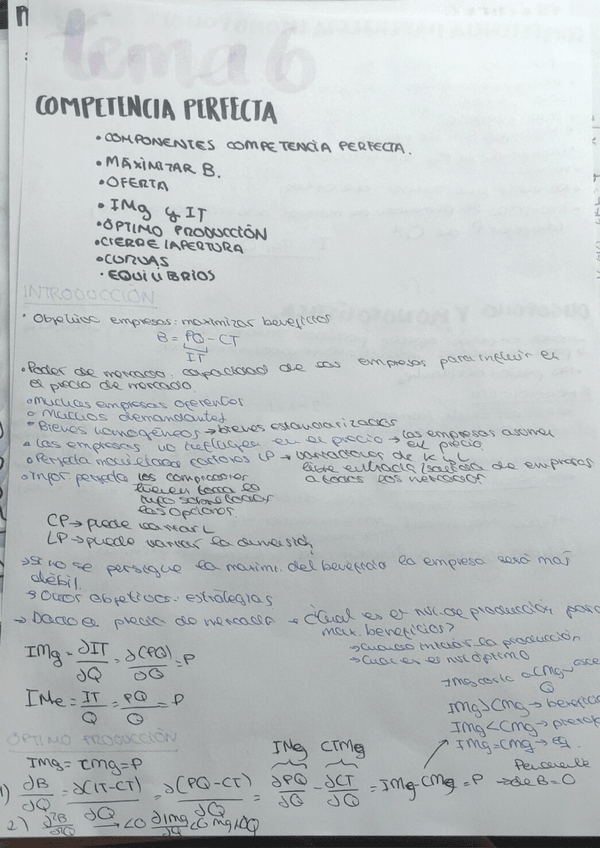 Tema 6
COMPETENCIA PERFECTA
• COMPONENTES COMPETENCIA PERFECTA.
• MÁXIMIZAR B.
• OFERTA
• IMg y IT
• ÓPTIMO PRODUCCIÓN
• CIERRE / APERTURA
• CURVAS
• EQUILIBRIOS
INTRODUCCIÓN
• Objetivo empresas: maximizar beneficios
B = PQ - CT
IT
• Poder de mercado: capacidad de las empresas para influir en
el precio de mercado
• Muchas empresas oferentes
• Muchos demandantes
• Bienes homogéneos → bienes estandarizados
• Las empresas no influyen en el precio → las empresas asumen el precio
• Perfecta movilidad factores LP → variaciones de K y L
libre entrada/salida de empresas
a todos los mercados
• Infor perfecta los compradores
tienen toda la
info sobre todas
las opciones.
CP → puede variar L
LP → puede variar la dimensión
→ Si no se persigue la maximi. del beneficio la empresa será más
débil.
→ Otros objetivos: estrategias
→ Dado el precio de mercado → ¿Cuál es el niv. de producción para
max. beneficios?
→ cuando iniciar la producción
→ cual es el niv óptimo
IMg = ∂IT/∂Q = ∂(PQ)/∂Q = P
IMe = IT/Q = PQ/Q = P
IMg > CMg →
IMg < CMg →
IMg = CMg → eq.
ÓPTIMO PRODUCCIÓN
IMg = CMg = P
IMg CTMg
1) ∂B/∂Q = ∂(IT-CT)/∂Q = ∂(PQ-CT)/∂Q = ∂PQ/∂Q - ∂CT/∂Q = IMg - CMg = P → de B = 0
2) ∂²B/∂²Q → < 0